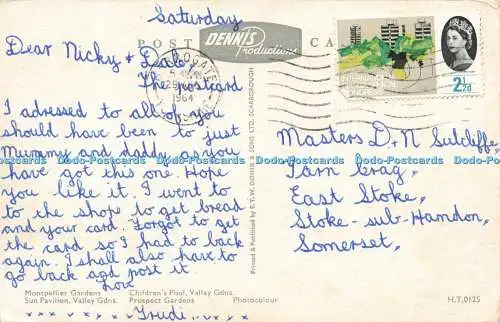 Saturday
POST CARD
DENNIS
Productions
Dear Nicky + Dale,
The postcard
I adressed to all of you
should have been to just
Mummy and daddy, as you
have got this one. Hope
you like it. I went to
to the shops to get bread
and your card. Forgot to get
the card so I had to back
again. I shall also have to
go back and post it.
Love
Trudi.
x x x x x x x x
1964
INTERNATIONAL
2½d
Masters D. + N Sutcliffe,
Tarn Crag,
East Stoke,
Stoke-sub-Hamdon,
Somerset,
Printed & Published by E. T. W. DENNIS & SONS LTD., SCARBOROUGH
Montpellier Gardens Children's Pool, Valley Gdns.
Sun Pavilion, Valley Gdns. Prospect Gardens Photocolour
H.T.0125
Dodo-Postcards Dodo-Postcards Dodo-Postcards Dodo-Postcards Dodo-Postcards Dodo-Postcards